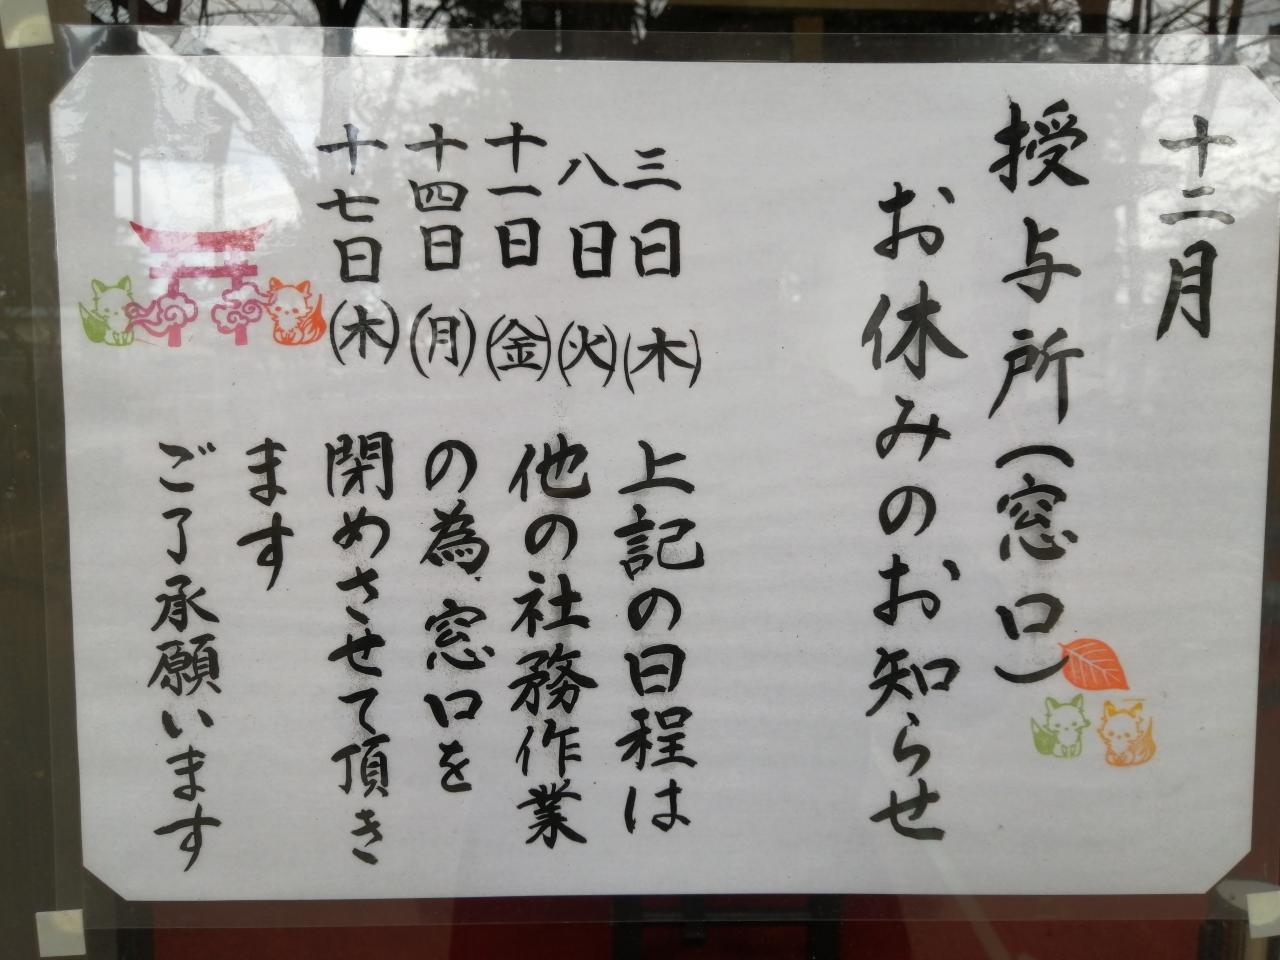 十二月
授与所(窓口)
お休みのお知らせ
三日(木)
八日(火)
十一日(金)
十四日(月)
十七日(木)
上記の日程は
他の社務作業
の為窓口を
閉めさせて頂き
ます
ご了承願います